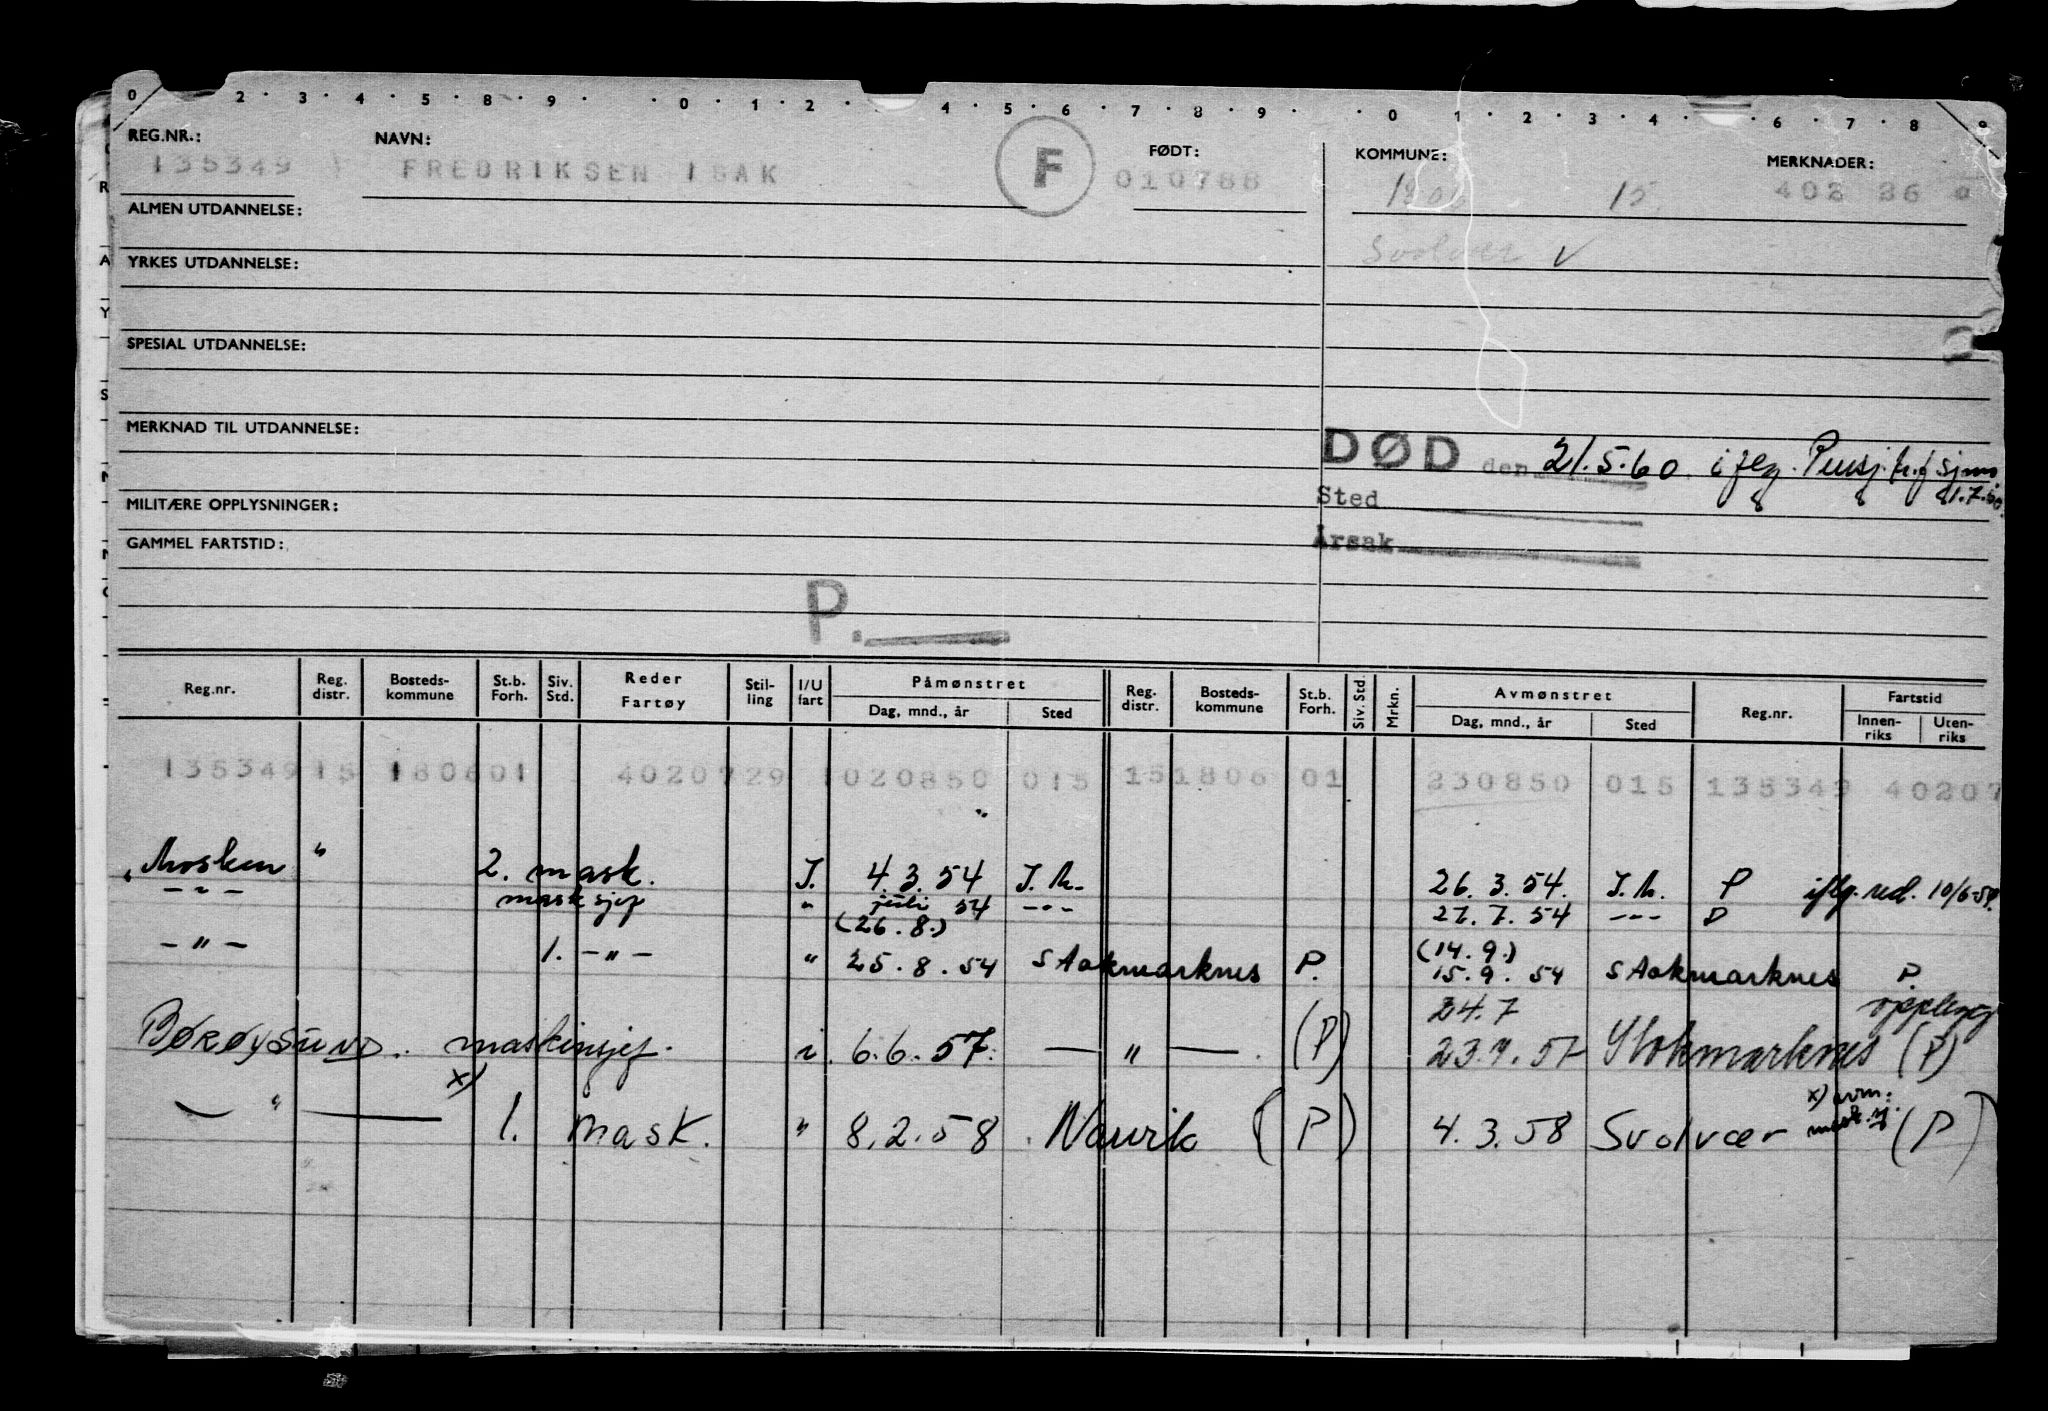 0 2 · 3 · 4 · 5 · 8 · 9 · · 0 · 1 · 2 · 4 · 5 · 6 · 7 · 8 · 9 · · 0 1 · 2 · 3 · 4 · 6 · 7 · 8 9
REG.NR.: NAVN: FØDT: KOMMUNE: MERKNADER:
135349 FREDRIKSEN ISAK F 010788 15 402 26
ALMEN UTDANNELSE:
Svolvær V
YRKES UTDANNELSE:
SPESIAL UTDANNELSE:
MERKNAD TIL UTDANNELSE:
DØD den 21.5.60 iflg. Pensj.tr.f sjøm.
1.7.60.
Sted
MILITÆRE OPPLYSNINGER:
Årsak
GAMMEL FARTSTID:
P.
Reg.nr. Reg. distr. Bosteds-kommune St.b. Forh. Siv. Std. Reder Fartøy Stil-ling I/U fart Påmønstret Dag, mnd., år Sted Reg. distr. Bosteds-kommune St.b. Forh. Siv. Std. Mrkn. Avmønstret Dag, mnd., år Sted Reg.nr. Fartstid Innen-riks Uten-riks
135349 15 180601 4020729 1020850 015 151806 01 230850 015 135349 40207
Mosken " 2. mask. I. 4.3.54 I.h. 26.3.54. I.h. P iflg. red. 10/6-58.
-"- mask sjef " juli 54 -"- 27.7.54 -"- P
(26.8.) (14.9.)
-"- 1. -"- " 25.8.54 Stokmarknes P. 15.9.54 Stokmarknes P.
24.7 oppløng
BØRØYSUND. maskinsjef. i. 6.6.57. — " —. (P) 23.7.57 Stokmarknes (P)
x) x) avm:
— " — 1. mask. " 8.2.58 Narvik (P) 4.3.58 Svolvær mask.sj. (P)